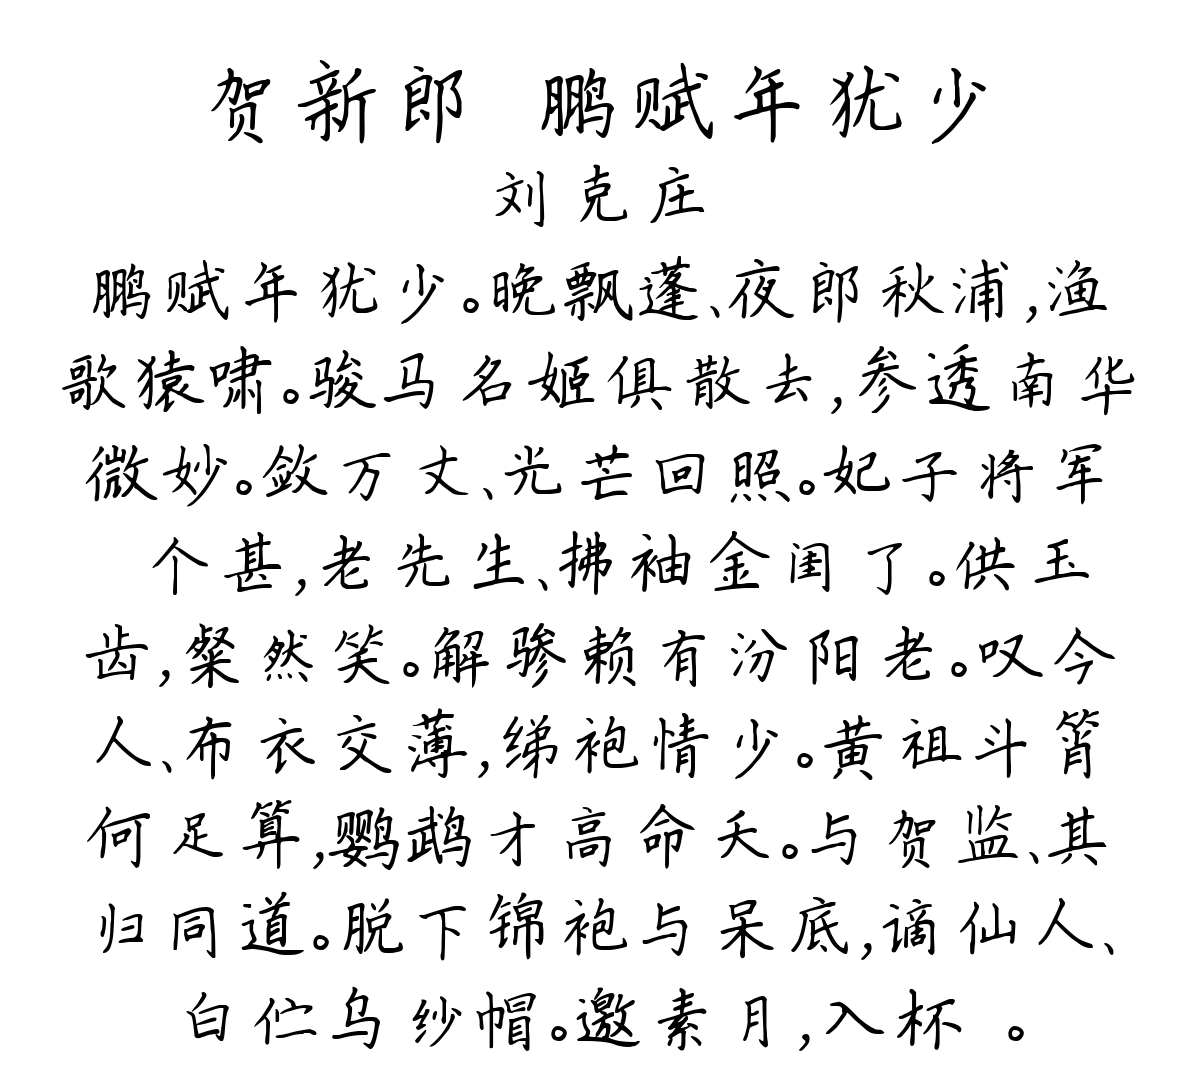 贺新郎 鹏赋年犹少
刘克庄
鹏赋年犹少。晚飘蓬、夜郎秋浦,渔
歌猿啸。骏马名姬俱散去,参透南华
微妙。敛万丈、光芒回照。妃子将军
个甚,老先生、拂袖金闺了。供玉
齿,粲然笑。解骖赖有汾阳老。叹今
人、布衣交薄,绨袍情少。黄祖斗筲
何足算,鹦鹉才高命夭。与贺监、其
归同道。脱下锦袍与呆底,谪仙人、
白伫乌纱帽。邀素月,入杯 。